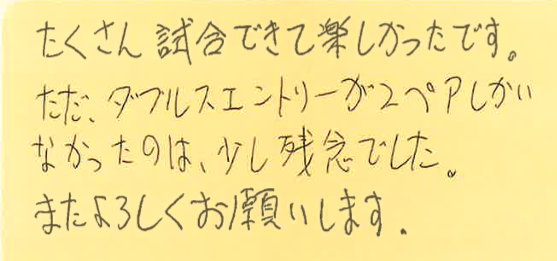 たくさん試合できて楽しかったです。
ただ、ダブルスエントリーが2ペアしかい
なかったのは、少し残念でした。
またよろしくお願いします.